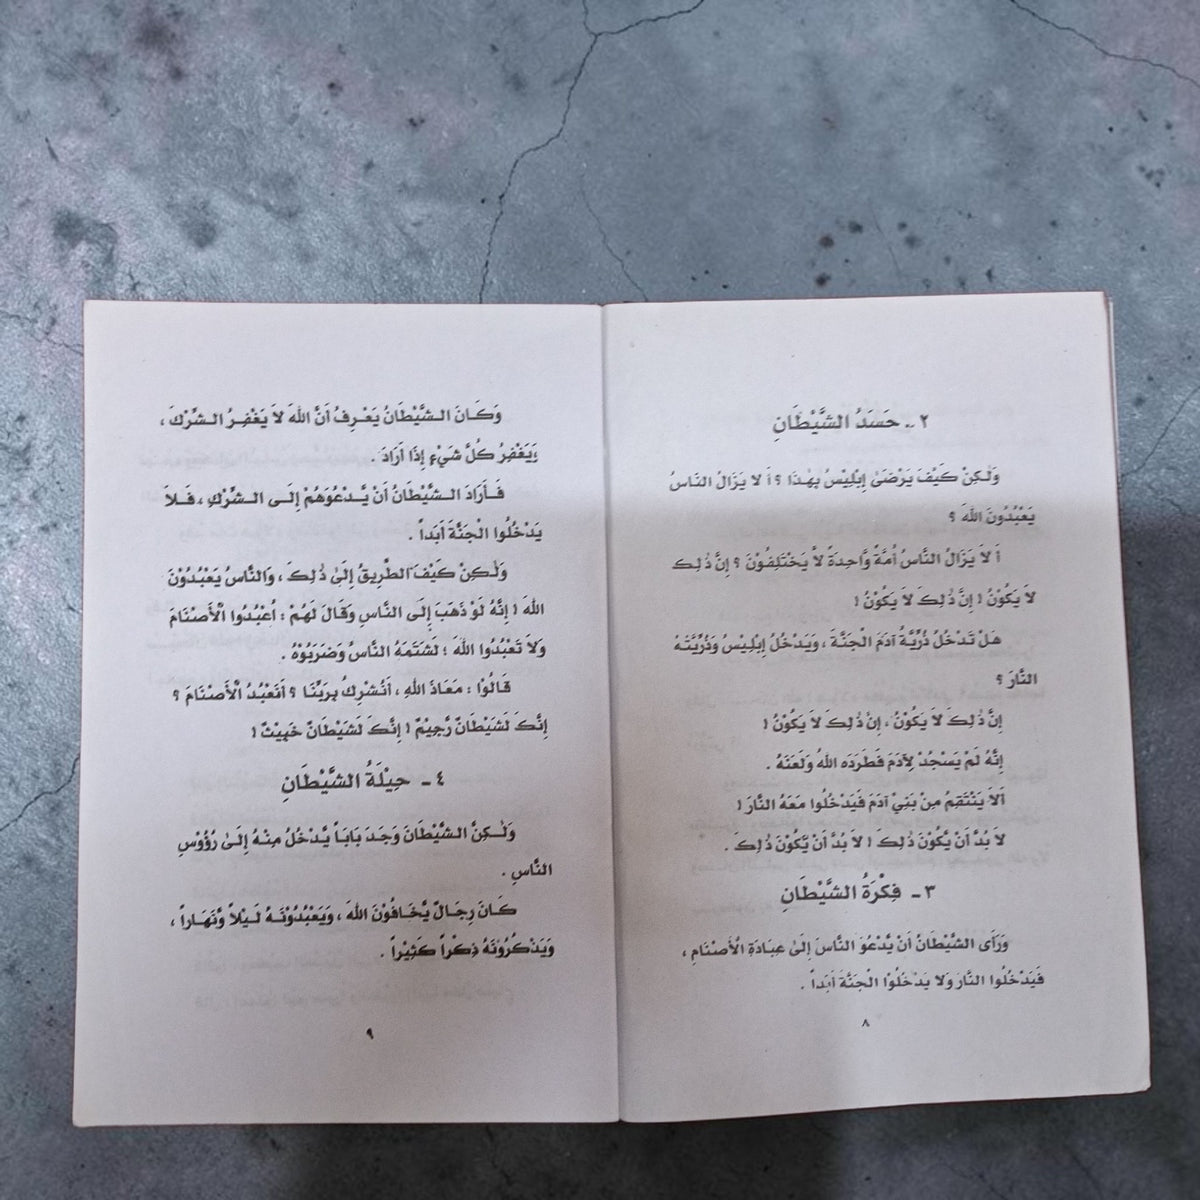 ٢ ـ حَسَدُ الشَّيْطَانِ
وَلٰكِنْ كَيْفَ يَرْضَىٰ إِبْلِيْسُ بِهٰذَا ؟ أَ لا يَزَالُ النَّاسُ
يَعْبُدُونَ اللهَ ؟
أَ لاَ يَزَالُ النَّاسُ أُمَّةً وَّاحِدَةً لاَّ يَخْتَلِفُوْنَ ؟ إِنَّ ذٰلِكَ
لاَ يَكُوْنُ ! إِنَّ ذٰلِكَ لاَ يَكُوْنُ !
هَلْ تَدْخُلُ ذُرِّيَّةُ آدَمَ الْجَنَّةَ ، وَيَدْخُلُ إِبْلِيْسُ وَذُرِّيَّتُهُ
النَّارَ ؟
إِنَّ ذٰلِكَ لاَ يَكُوْنُ ، إِنَّ ذٰلِكَ لاَ يَكُوْنُ !
إِنَّهُ لَمْ يَسْجُدْ لِآدَمَ فَطَرَدَه اللهُ وَلَعَنَهُ .
أَلاَ يَنْتَقِمُ مِنْ بَنِيْ آدَمَ فَيَدْخُلُوا مَعَهُ النَّارَ !
لاَ بُدَّ أَنْ يَّكُوْنَ ذٰلِكَ ! لاَ بُدَّ أَنْ يَّكُوْنَ ذٰلِكَ .
٣ ـ فِكْرَةُ الشَّيْطَانِ
وَرَأَى الشَّيْطَانُ أَنْ يَّدْعُوَ النَّاسَ إِلَىٰ عِبَادَةِ الْأَصْنَامِ ،
فَيَدْخُلُوا النَّارَ وَلا يَدْخُلُوْا الْجَنَّةَ أَبَداً .
٨
وَكَانَ الشَّيْطَانُ يَعْرِفُ أَنَّ اللهَ لاَ يَغْفِرُ الشِّرْكَ ،
وَيَغْفِرُ كُلَّ شَيْءٍ إِذَا أَرَادَ .
فَأَرَادَ الشَّيْطَانُ أَنْ يَّدْعُوَهُمْ إِلَى الشِّرْكِ ، فَلاَ
يَدْخُلُوا الْجَنَّةَ أَبَداً .
وَلٰكِنْ كَيْفَ الطَّرِيقُ إِلَىٰ ذٰلِكَ ، وَالنَّاسُ يَعْبُدُوْنَ
اللهَ ! إِنَّهُ لَوْ ذَهَبَ إِلَى النَّاسِ وَقَالَ لَهُمْ : اُعْبُدُوا الْأَصْنَامَ
وَلاَ تَعْبُدُوا اللهَ ؛ لَشَتَمَهُ النَّاسُ وَضَرَبُوْهُ .
قَالُوْا : مَعَاذَ اللهِ ، أَنُشْرِكُ بِرَبِّنَا ؟ أَنَعْبُدُ الْأَصْنَامَ ؟
إِنَّكَ لَشَيْطَانٌ رَّجِيْمٌ ! إِنَّكَ لَشَيْطَانٌ خَبِيْثٌ !
٤ ـ حِيْلَةُ الشَّيْطَانِ
وَلٰكِنَّ الشَّيْطَانَ وَجَدَ بَابَاً يَّدْخُلُ مِنْهُ إِلَىٰ رُؤُوْسِ
النَّاسِ .
كَانَ رِجَالٌ يَّخَافُوْنَ اللهَ ، وَيَعْبُدُوْنَهُ لَيْلاً وَّنَهَاراً ،
وَيَذْكُرُوْنَهُ ذِكْراً كَثِيْراً .
٩